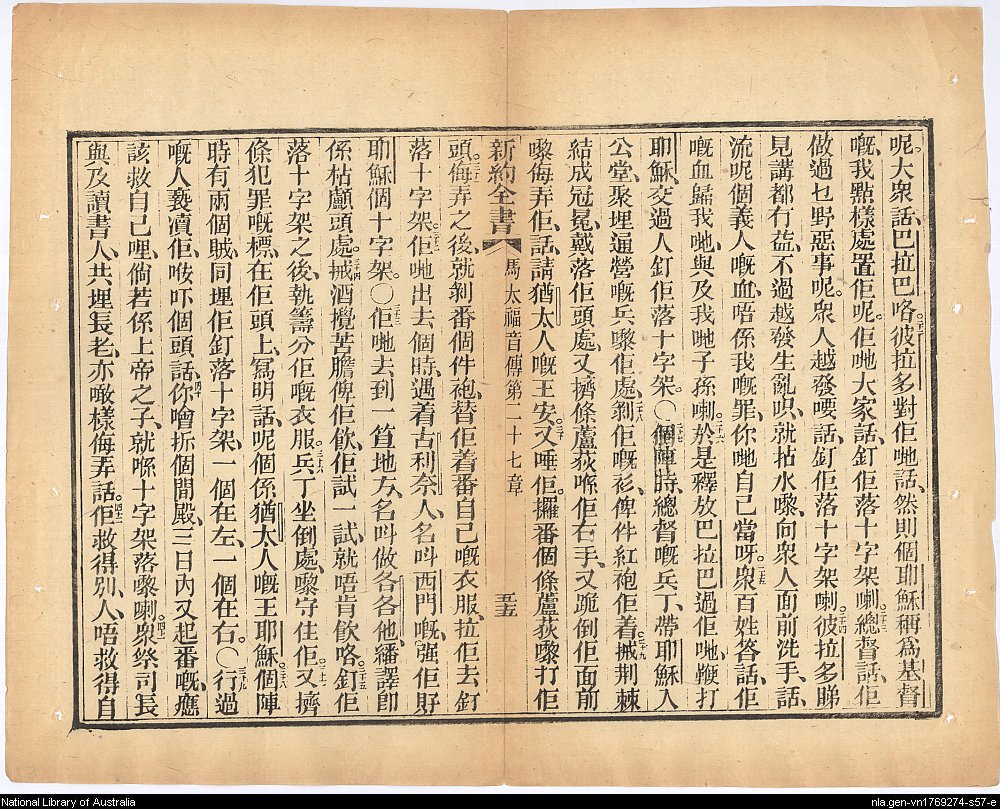 呢、大衆話、巴拉巴咯。二十二彼拉多對佢哋話、然則個耶穌稱爲基督
嘅、我點樣處置佢呢、佢哋大家話、釘佢落十字架喇。二十三總督話、佢
做過乜野惡事呢。衆人越發喓話、釘佢落十字架喇。二十四彼拉多睇
見講都冇益、不過越發生亂呮、就拈水嚟、向衆人面前洗手、話、
流呢個義人嘅血、唔係我嘅罪、你哋自己當呀。二十五衆百姓答話、佢
嘅血歸我哋、與及我哋子孫喇。二十六於是釋放巴拉巴過佢哋、鞭打
耶穌、交過人釘佢落十字架。〇二十七個陣時、總督嘅兵丁、帶耶穌入
公堂、聚埋逼營嘅兵嚟佢處、二十八剝佢嘅衫、俾件紅袍佢着、二十九搣荆棘
結成冠冕、戴落佢頭處、又擠條蘆荻喺佢右手、又跪倒佢面前
嚟侮弄佢、話、請猶太人嘅王安、三十又唾佢、攞番個條蘆荻嚟打佢
新約全書 馬太福音傳第二十七章 五五
頭。三十一侮弄之後、就剝番個件袍、替佢着番自己嘅衣服、拉佢去釘
落十字架。三十二佢哋出去個時、遇着古利奈人、名叫西門嘅、强佢孭
耶穌個十字架。〇三十三佢哋去到一笪地方、名叫做各各他、繙譯卽
係枯顱頭處。三十四搣酒攪苦膽俾佢飲、佢試一試、就唔肯飲咯。三十五釘佢
落十字架之後、執籌分佢嘅衣服。三十六兵丁坐倒處、嚟守住佢。三十七又擠
條犯罪嘅標、在佢頭上、寫明話、呢個係猶太人嘅王耶穌。三十八個陣
時有兩個賊、同埋佢釘落十字架、一個在左、一個在右。〇三十九行過
嘅人褻瀆佢、𠱁吓個頭話、四十你噲拆個間殿、三日內又起番嘅、應
該救自己哩、倘若係上帝之子、就喺十字架落嚟喇。四十一衆祭司長
與及讀書人、共埋長老、亦噉樣侮弄話。四十二佢救得別人、唔救得自
National Library of Australia
nla.gen-vn1769274-s57-e